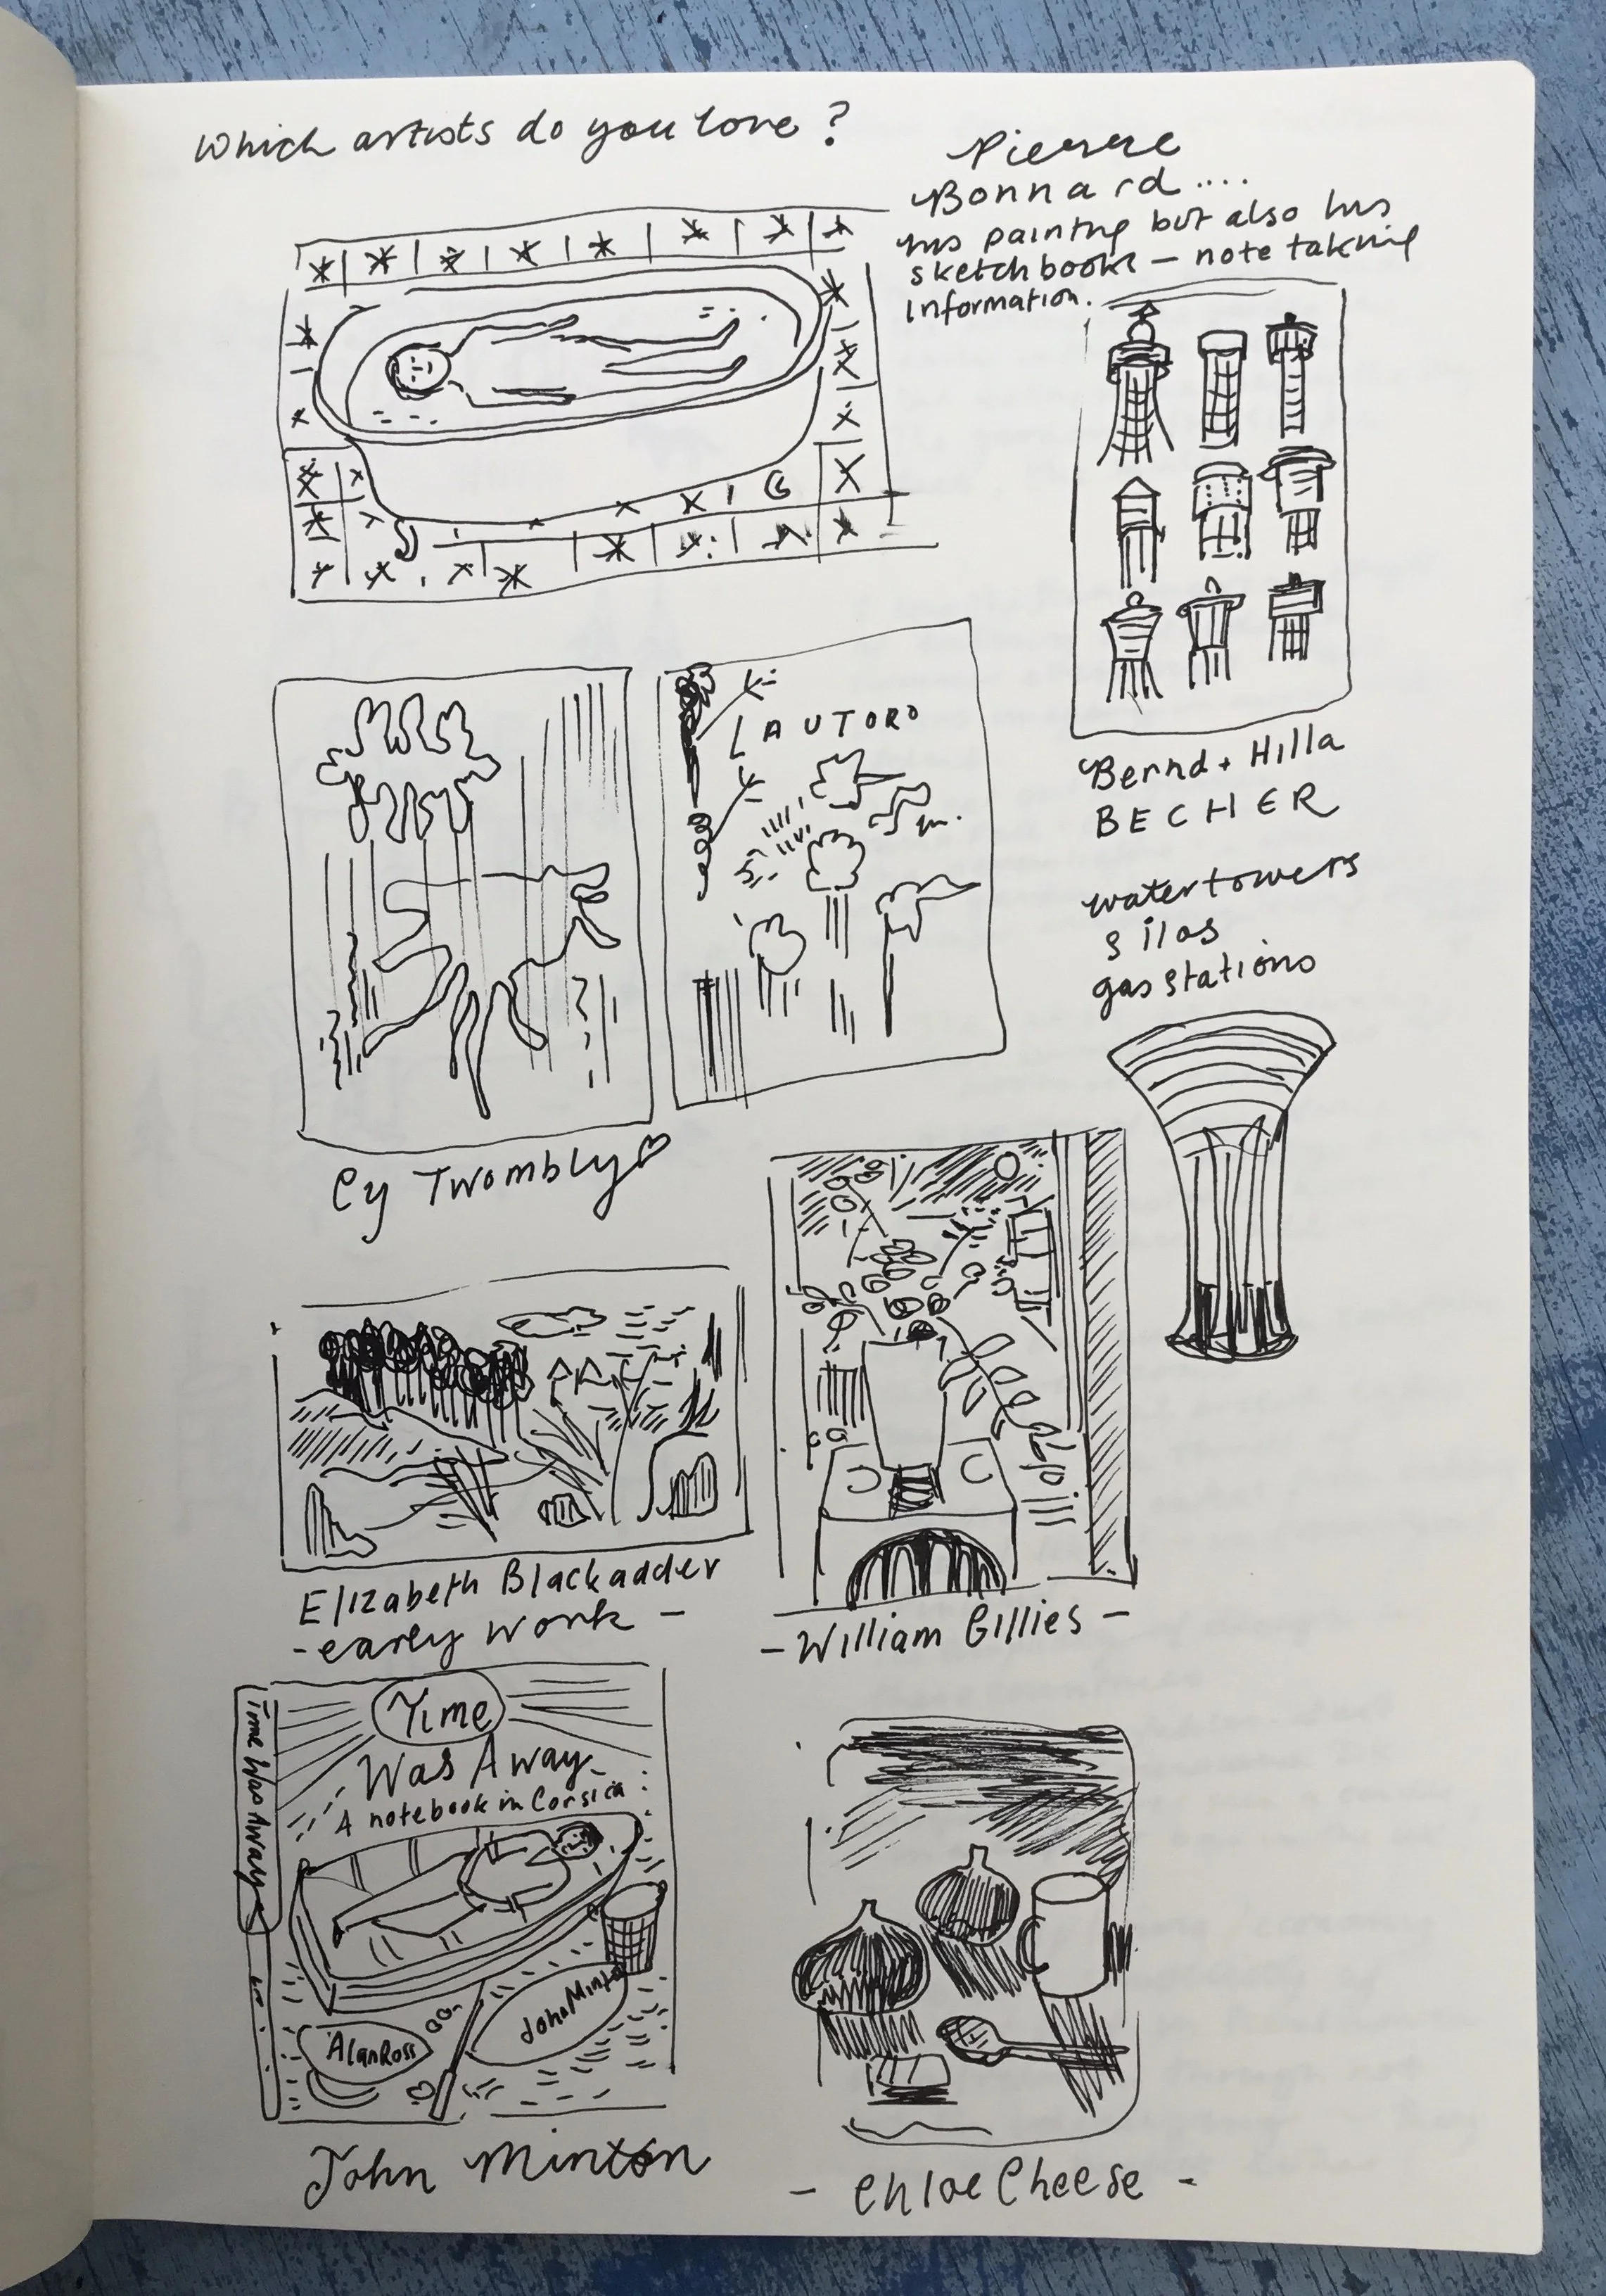 Which artists do you love ?
Pierre
Bonnard ....
his painting but also his
sketchbooks — note taking
information.
LAUTORO
Bernd + Hilla
BECHER
watertowers
silos
gas stations
Cy Twombly
Elizabeth Blackadder
- early work -
- William Gillies -
Time Was Away
Time
Was Away
A notebook in Corsica
Alan Ross
John Minton
John Minton
- Chloe Cheese -